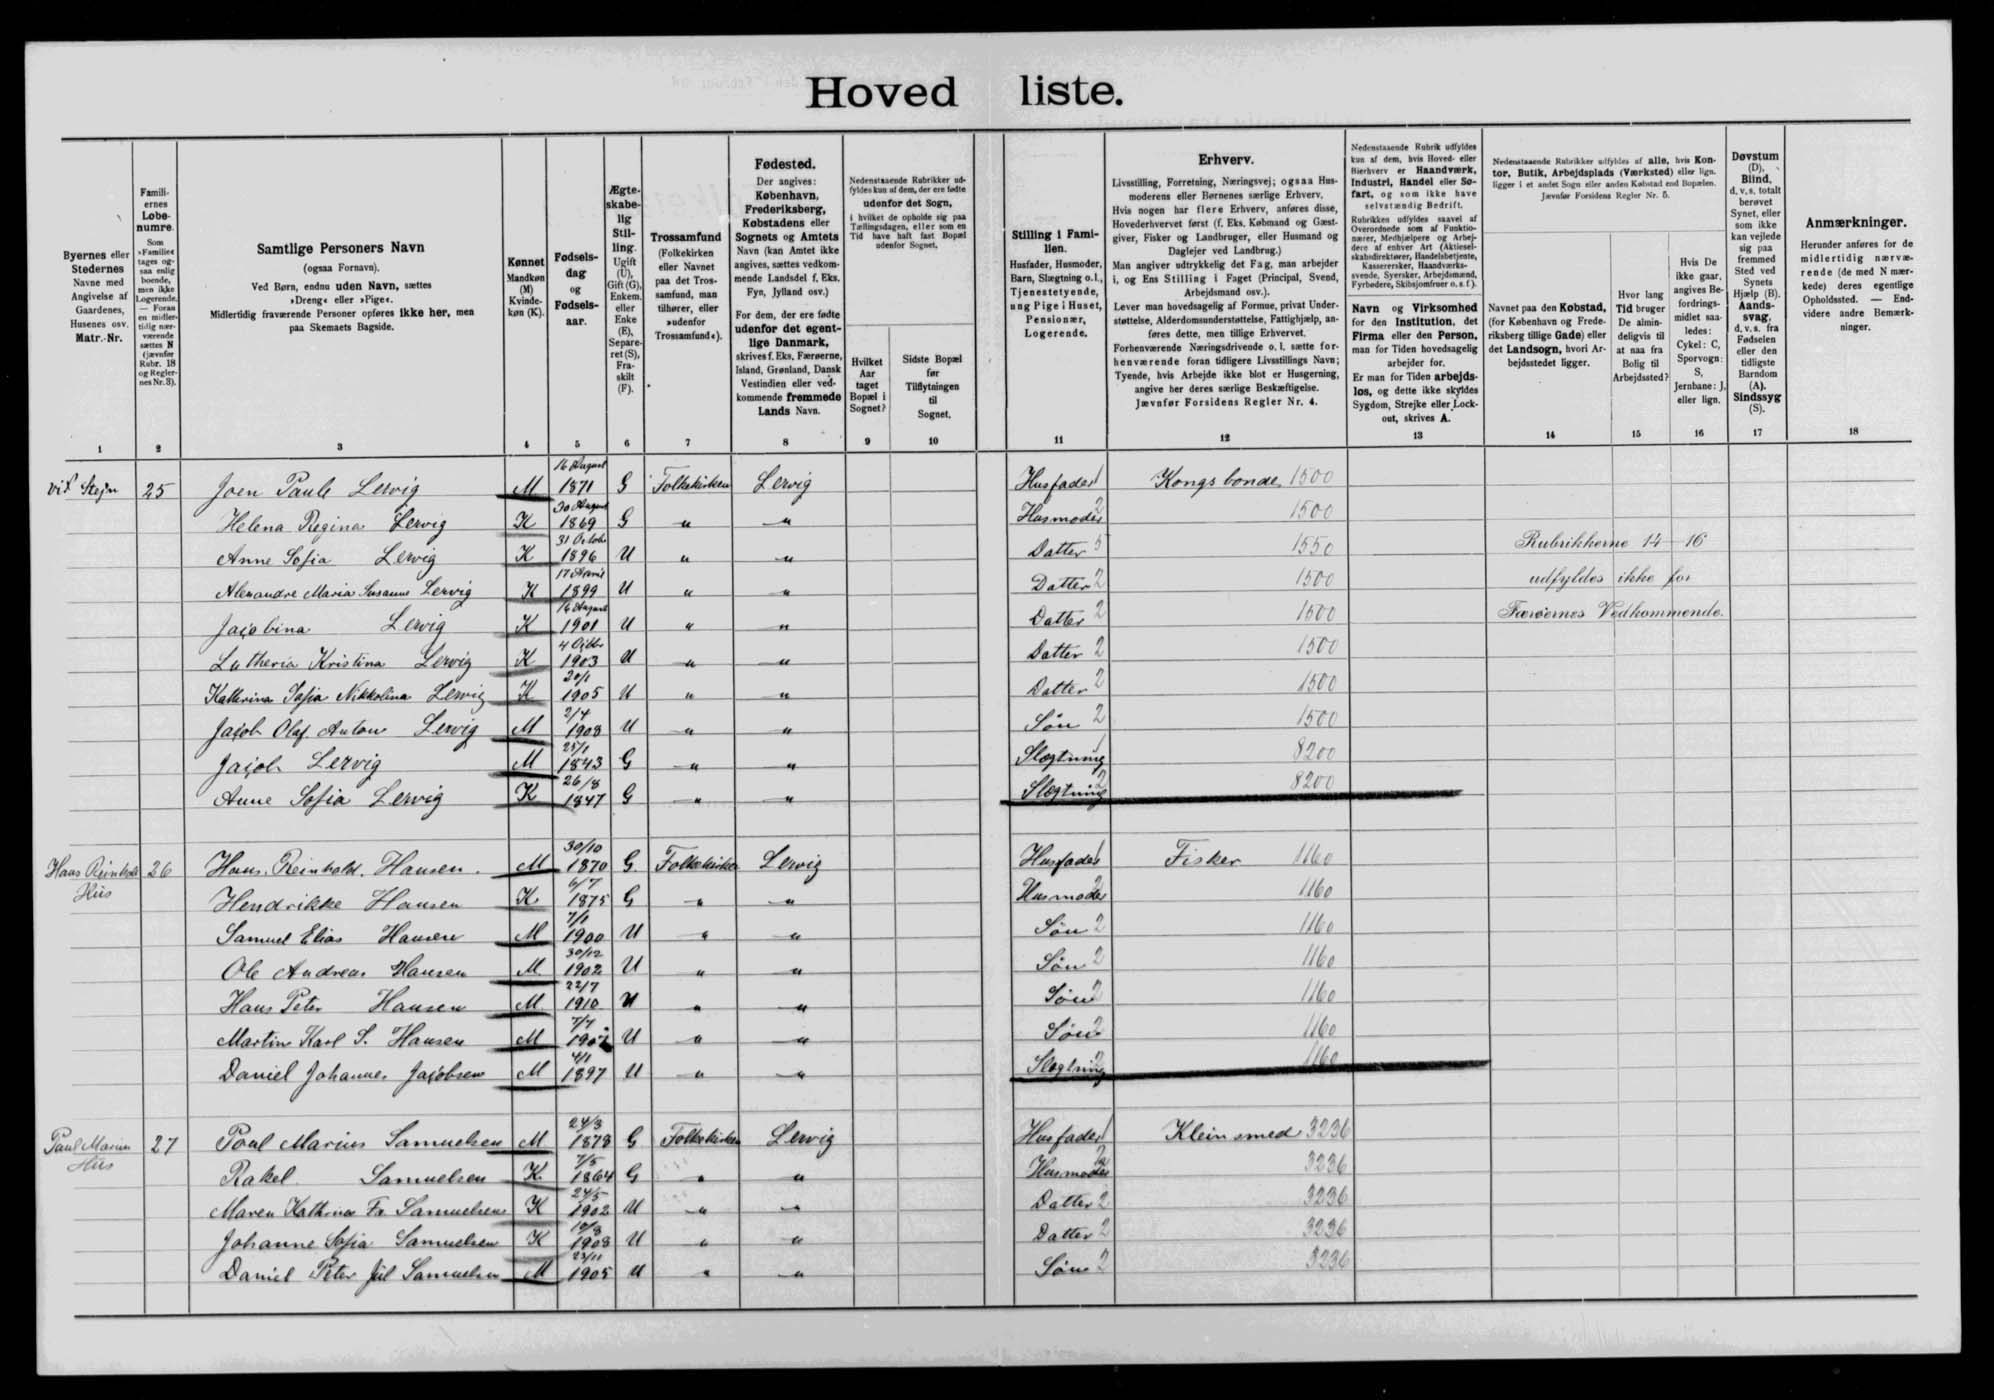 Hovedliste.
Byernes eller Stedernes Navne med Angivelse af Gaardenes, Husenes osv. Matr.-Nr.
Familiernes Løbenumre. Som »Familie« tages ogsaa enlig boende, men ikke Logerende. — Foran en midlertidig nærværende sættes N (jævnfør Rubr. 18 og Regler-nes Nr. 3).
Samtlige Personers Navn
(ogsaa Fornavn).
Ved Børn, endnu uden Navn, sættes
»Dreng« eller »Pige«.
Midlertidig fraværende Personer opføres ikke her, men
paa Skemaets Bagside.
Kønnet Mandkøn (M) Kvindekøn (K).
Fødselsdag og Fødselsaar.
Ægteskabelig Stilling. Ugift (U), Gift (G), Enkem. eller Enke (E), Separeret (S), Fraskilt (F).
Trossamfund (Folkekirken eller Navnet paa det Trossamfund, man tilhører, eller »udenfor Trossamfund«).
Fødested.
Der angives: København, Frederiksberg, Købstadens eller Sognets og Amtets Navn (kan Amtet ikke angives, sættes vedkommende Landsdel f. Eks. Fyn, Jylland osv.)
For dem, der ere fødte udenfor det egentlige Danmark, skrives f. Eks. Færøerne, Island, Grønland, Dansk Vestindien eller vedkommende fremmede Lands Navn.
Nedenstaaende Rubrikker udfyldes kun af dem, der ere fødte udenfor det Sogn, i hvilket de opholde sig paa Tællingsdagen, eller som en Tid have haft fast Bopæl udenfor Sognet.
Hvilket Aar taget Bopæl i Sognet?
Sidste Bopæl før Tilflytningen til Sognet.
Stilling i Familien.
Husfader, Husmoder, Barn, Slægtning o.l., Tjenestetyende, ung Pige i Huset, Pensionær, Logerende.
Erhverv.
Livsstilling, Forretning, Næringsvej; ogsaa Husmoderens eller Børnenes særlige Erhverv.
Hvis nogen har flere Erhverv, anføres disse, Hovederhvervet først (f. Eks. Købmand og Gæstgiver, Fisker og Landbruger, eller Husmand og Daglejer ved Landbrug.)
Man angiver udtrykkelig det Fag, man arbejder i, og Ens Stilling i Faget (Principal, Svend, Arbejdsmand osv.).
Lever man hovedsagelig af Formue, privat Understøttelse, Alderdomsunderstøttelse, Fattighjælp, anføres dette, men tillige Erhvervet.
Forhenværende Næringsdrivende o. l. sætte forhenværende foran tidligere Livsstillings Navn;
Tyende, hvis Arbejde ikke blot er Husgerning, angive her deres særlige Beskæftigelse.
Jævnfør Forsidens Regler Nr. 4.
Nedenstaaende Rubrik udfyldes kun af dem, hvis Hoved- eller Bierhverv er Haandværk, Industri, Handel eller Søfart, og som ikke have selvstændig Bedrift.
Rubrikken udfyldes saavel af Overordnede som af Funktionærer, Medhjælpere og Arbejdere af enhver Art (Aktieselskabsdirektører, Handelsbetjente, Kasserersker, Haandværkssvende, Syersker, Arbejdsmænd, Fyrbødere, Skibsjomfruer o. s. f.).
Navn og Virksomhed for den Institution, det Firma eller den Person, man for Tiden hovedsagelig arbejder for.
Er man for Tiden arbejdsløs, og dette ikke skyldes Sygdom, Strejke eller Lockout, skrives A.
Nedenstaaende Rubrikker udfyldes af alle, hvis Kontor, Butik, Arbejdsplads (Værksted) eller lign. ligger i et andet Sogn eller anden Købstad end Bopælen. Jævnfør Forsidens Regler Nr. 5.
Navnet paa den Købstad, (for København og Frederiksberg tillige Gade) eller det Landsogn, hvori Arbejdsstedet ligger.
Hvor lang Tid bruger De almindeligvis til at naa fra Bolig til Arbejdssted?
Hvis De ikke gaar, angives Befordringsmidlet saaledes: Cykel: C, Sporvogn: S, Jernbane: J, eller lign.
Døvstum (D), Blind, d. v. s. totalt berøvet Synet, eller som ikke kan vejlede sig paa fremmed Sted ved Synets Hjælp (B). Aandssvag, d. v. s. fra Fødselen eller den tidligste Barndom (A). Sindssyg (S).
Anmærkninger.
Herunder anføres for de midlertidig nærværende (de med N mærkede) deres egentlige Opholdssted. — Endvidere andre Bemærkninger.
1 2 3 4 5 6 7 8 9 10 11 12 13 14 15 16 17 18
við Stejn 25 Joen Paule Lervig M 16 August 1871 G Folkekirken Lervig Husfader 1 Kongsbonde 1500
Helena Regina Lervig K 30 August 1869 G " " Husmoder 2 1500
Anne Sofia Lervig K 31 Octobr 1896 U " " Datter 5 1550 Rubrikkerne 14-16
Alexandre Maria Susanne Lervig K 17 April 1899 U " " Datter 2 1500 udfyldes ikke for
Jacobina Lervig K 16 August 1901 U " " Datter 2 1500 Færøernes Vedkommende.
Lutheria Kristina Lervig K 4 1903 U " " Datter 2 1500
Kathrina Sofia Nikkolina Lervig K 20/1 1905 U " " Datter 2 1500
Jacob Olaf Anton Lervig M 2/4 1908 U " " Søn 2 1500
Jacob Lervig M 25/1 1843 G " " Slægtning 1 8200
Anne Sofia Lervig K 26/8 1847 G " " Slægtning 2 8200
Hans Reinholds Hus 26 Hans Reinhold Hansen M 30/10 1870 G Folkekirken Lervig Husfader 1 Fisker 1160
Hendrikke Hansen K 6/7 1875 G " " Husmoder 2 1160
Samuel Elias Hansen M 7/1 1900 U " " Søn 2 1160
Ole Andreas Hansen M 30/12 1902 U " " Søn 2 1160
Hans Peter Hansen M 22/7 1910 U " " Søn 2 1160
Martin Karl S. Hansen M 7/7 U " " Søn 2 1160
Daniel Johannes Jacobsen M 4/1 1897 U " " Slægtning 2 1160
Paul Marius Hus 27 Poul Marius Samuelsen M 24/3 1878 G Folkekirken Lervig Husfader 1 Kleinsmed 3236
Rakel Samuelsen K 7/5 1864 G " " Husmoder 2 3236
Maren Kathrina Fr. Samuelsen K 24/5 1902 U " " Datter 2 3236
Johanne Sofia Samuelsen K 10/8 1908 U " " Datter 2 3236
Daniel Peter Jul Samuelsen M 23/11 1905 U " " Søn 2 3236